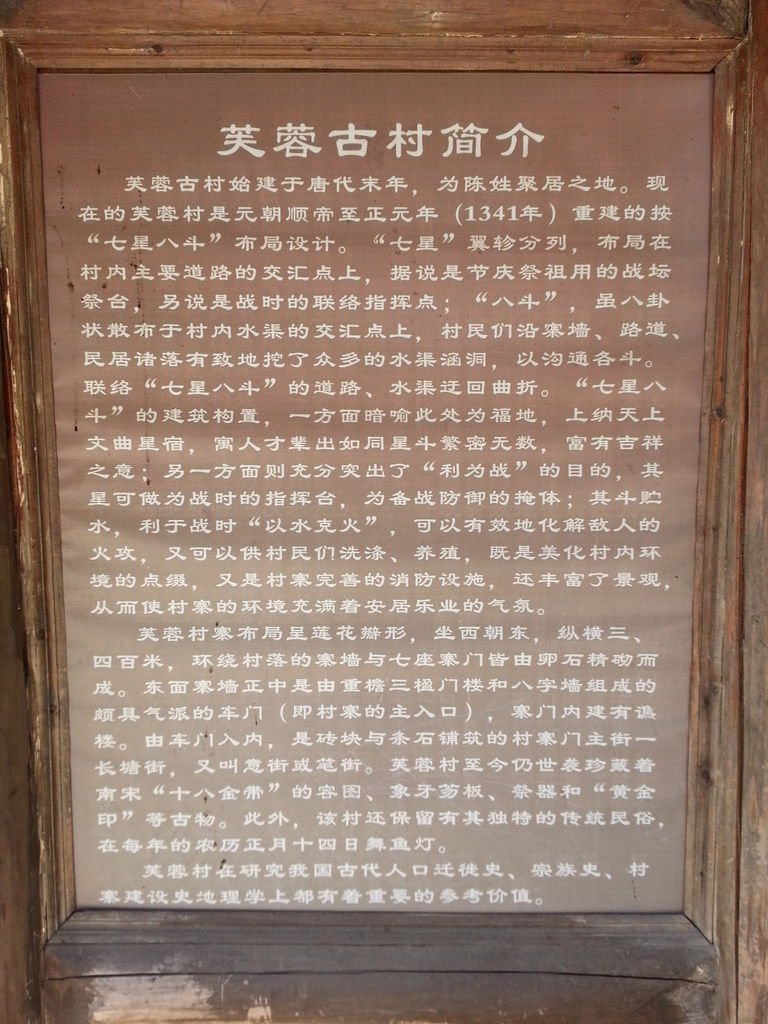 芙蓉古村简介
芙蓉古村始建于唐代末年，为陈姓聚居之地。现
在的芙蓉村是元朝顺帝至正元年（1341年）重建的按
“七星八斗”布局设计。“七星”翼轸分列，布局在
村内主要道路的交汇点上，据说是节庆祭祖用的战坛
祭台，另说是战时的联络指挥点；“八斗”，虽八卦
状散布于村内水渠的交汇点上，村民们沿寨墙、路道、
民居诸落有致地挖了众多的水渠涵洞，以沟通各斗。
联络“七星八斗”的道路、水渠迂回曲折。“七星八
斗”的建筑构置，一方面暗喻此处为福地，上纳天上
文曲星宿，寓人才辈出如同星斗繁密无数，富有吉祥
之意；另一方面则充分突出了“利为战”的目的，其
星可做为战时的指挥台，为备战防御的掩体；其斗贮
水，利于战时“以水克火”，可以有效地化解敌人的
火攻，又可以供村民们洗涤、养殖，既是美化村内环
境的点缀，又是村寨完善的消防设施，还丰富了景观，
从而使村寨的环境充满着安居乐业的气氛。
芙蓉村寨布局呈莲花瓣形，坐西朝东，纵横三、
四百米，环绕村落的寨墙与七座寨门皆由卵石精砌而
成。东面寨墙正中是由重檐三楹门楼和八字墙组成的
颇具气派的车门（即村寨的主入口），寨门内建有谯
楼。由车门入内，是砖块与条石铺筑的村寨门主街一
长塘街，又叫意街或笔街。芙蓉村至今仍世袭珍藏着
南宋“十八金带”的容图、象牙笏板、祭器和“黄金
印”等古物。此外，该村还保留有其独特的传统民俗，
在每年的农历正月十四日舞鱼灯。
芙蓉村在研究我国古代人口迁徙史、宗族史、村
寨建设史地理学上都有着重要的参考价值。